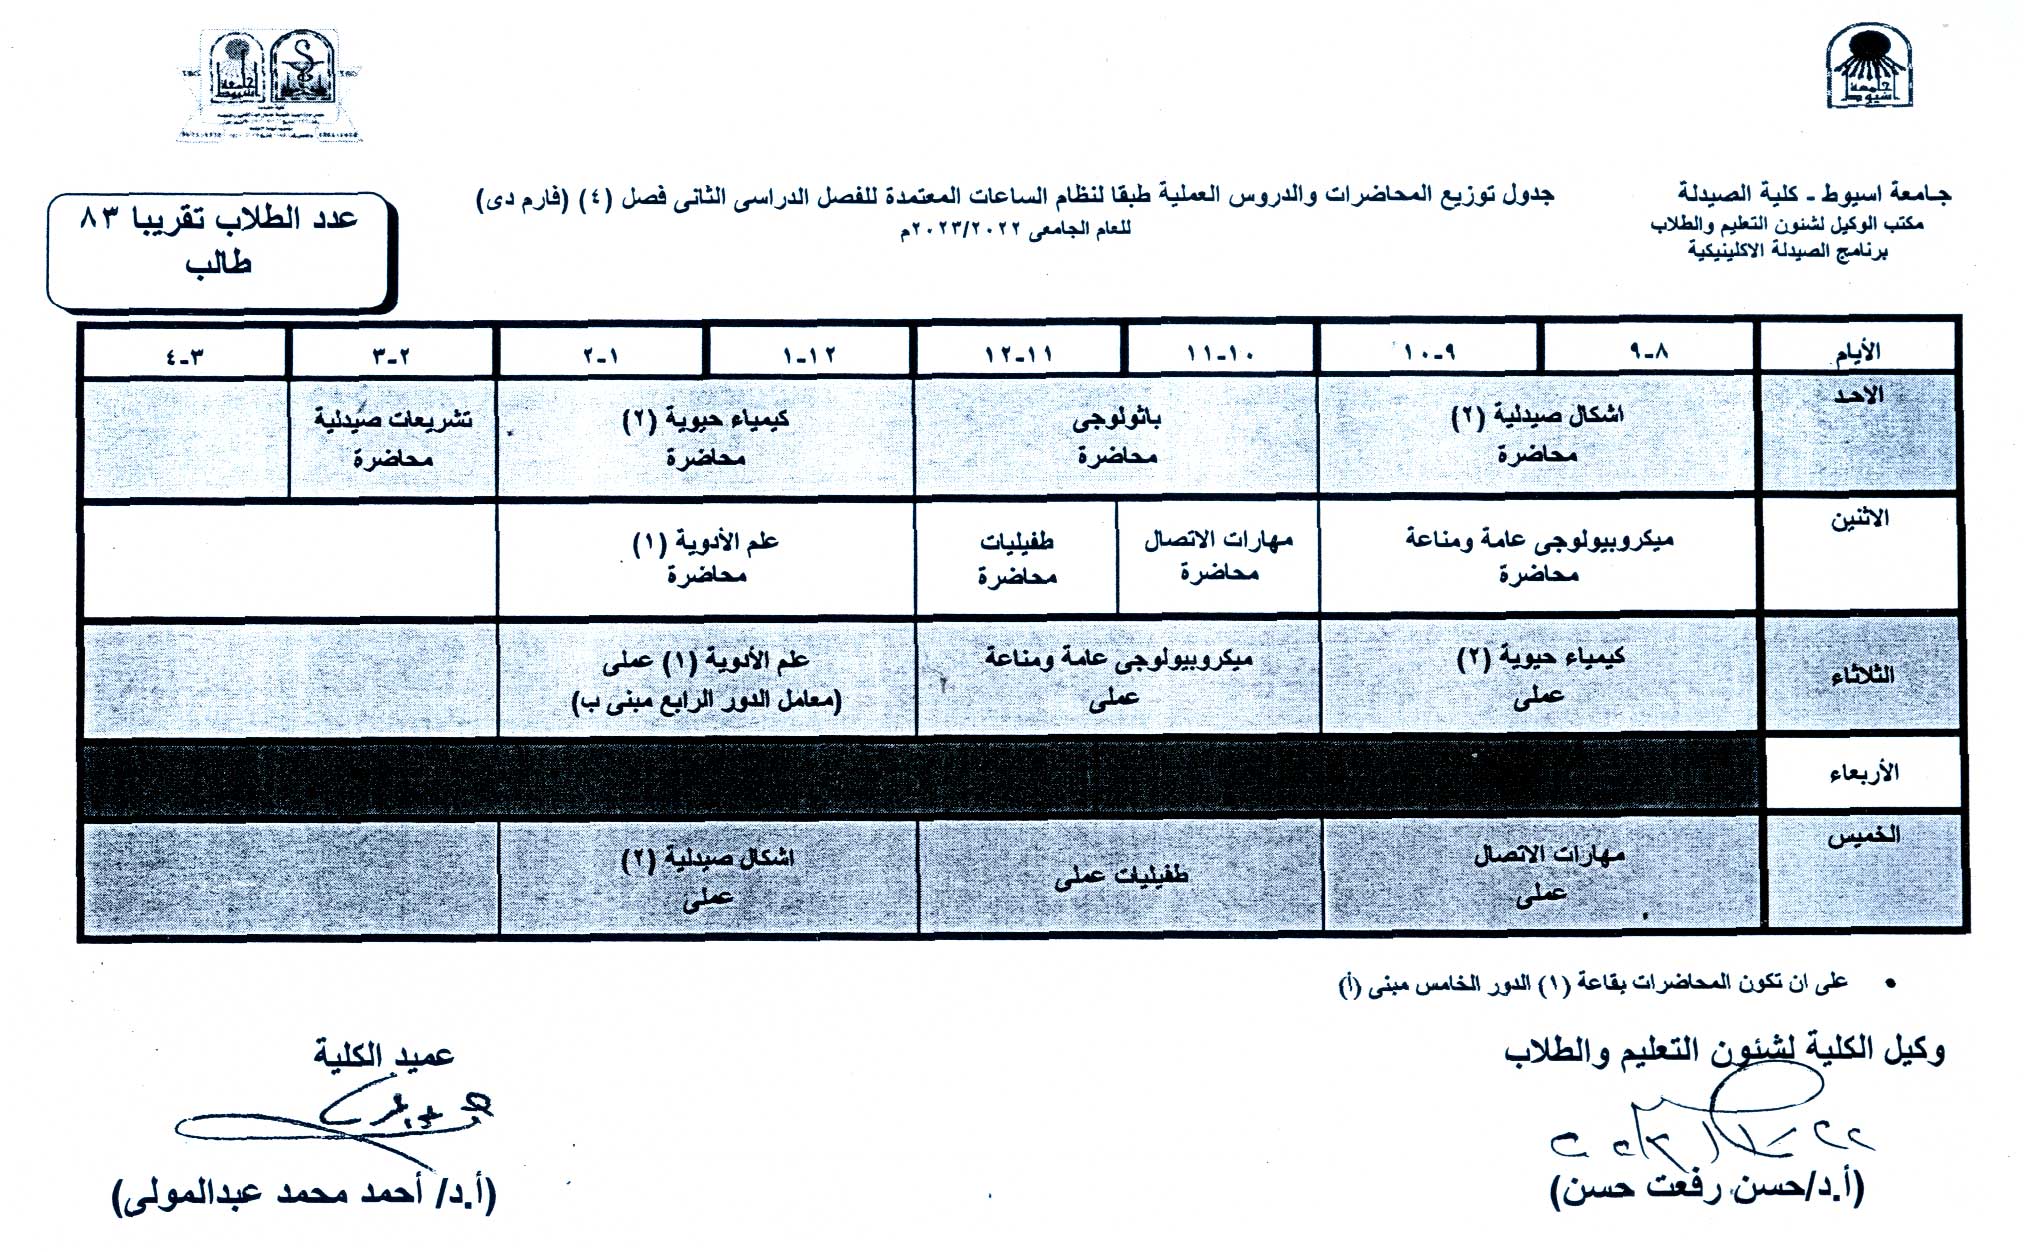 جامعة اسيوط
جامعة اسيوط - كلية الصيدلة
مكتب الوكيل لشئون التعليم والطلاب
برنامج الصيدلة الاكلينيكية
جدول توزيع المحاضرات والدروس العملية طبقا لنظام الساعات المعتمدة للفصل الدراسى الثانى فصل (٤) (فارم دى)
للعام الجامعى ٢٠٢٣/٢٠٢٢م
عدد الطلاب تقريبا ٨٣
طالب
الأيام ٨-٩ ٩-١٠ ١٠-١١ ١١-١٢ ١٢-١ ١-٢ ٢-٣ ٣-٤
الاحد
اشكال صيدلية (٢)
محاضرة
باثولوجى
محاضرة
كيمياء حيوية (٢)
محاضرة
تشريعات صيدلية
محاضرة
الاثنين
ميكروبيولوجى عامة ومناعة
محاضرة
مهارات الاتصال
محاضرة
طفيليات
محاضرة
علم الأدوية (١)
محاضرة
الثلاثاء
كيمياء حيوية (٢)
عملى
ميكروبيولوجى عامة ومناعة
عملى
علم الأدوية (١) عملى
(معامل الدور الرابع مبنى ب)
الأربعاء
الخميس
مهارات الاتصال
عملى
طفيليات عملى
اشكال صيدلية (٢)
عملى
• على ان تكون المحاضرات بقاعة (١) الدور الخامس مبنى (أ)
وكيل الكلية لشئون التعليم والطلاب
(أ.د/حسن رفعت حسن)
عميد الكلية
(أ.د/ أحمد محمد عبدالمولى)